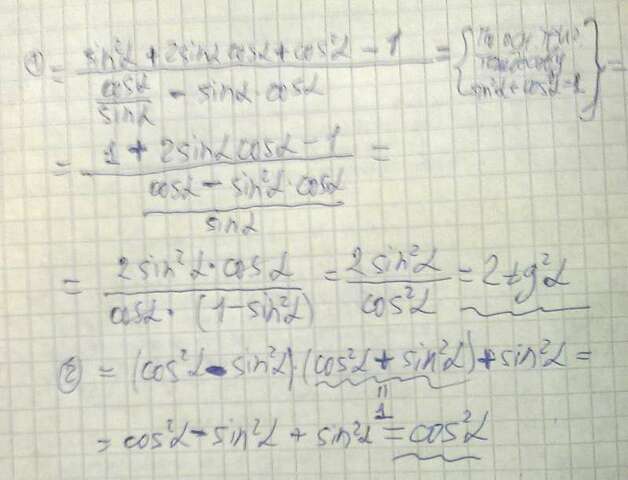 ① = (sin²α + 2sinα cosα + cos²α − 1) / (cosα/sinα − sinα · cosα) = { sin²α + cos²α = 1 } =
= (1 + 2sinα cosα − 1) / ((cosα − sin²α · cosα)/sinα) =
= (2sin²α · cosα) / (cosα · (1 − sin²α)) = 2sin²α / cos²α = 2tg²α
② = (cos²α − sin²α) · (cos²α + sin²α) + sin²α =
= 1
= cos²α − sin²α + sin²α = cos²α